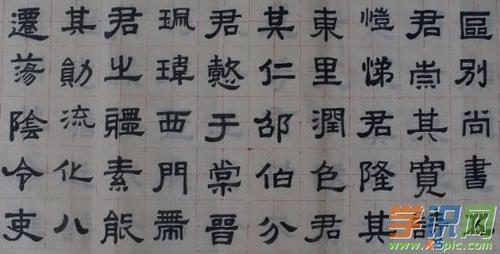 區別尚書
君崇其寬詩
愷悌君隆其
東里潤色君
其仁邵伯分
君懿于棠晉
珮瑋西門帶
君之體素能
其勛流化八
遷蕩陰令吏
学识网
www.xspic.com